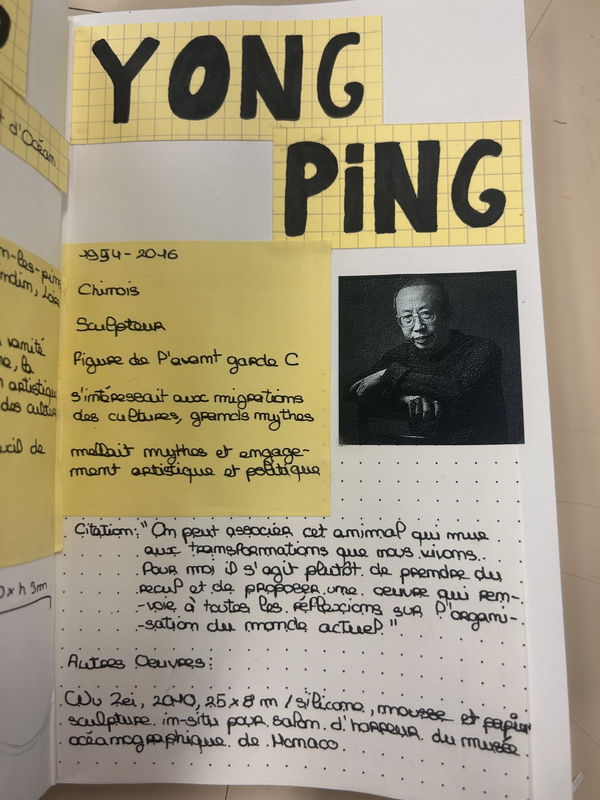 YONG
PiNG
1954-2016
Chinois
Sculpteur
Figure de l'avant garde C
s'intéressait aux migrations
des cultures, grands mythes
mêlait mythes et engage-
ment artistique et politique
Citation: "On peut associer cet animal qui mue
aux transformations que nous vivons.
Pour moi il s'agit plutôt de prendre du
recul et de proposer une oeuvre qui ren-
-voie à toutes les réflexions sur l'organi-
-sation du monde actuel."
Autres Oeuvres:
Wu Zei, 2010, 25x8 m / silicone, mousse et papier
sculpture in-situ pour salon d'honneur du musée
océanographique de Monaco.
t d'Océan
vanité
artistique
des cultur
h 3m